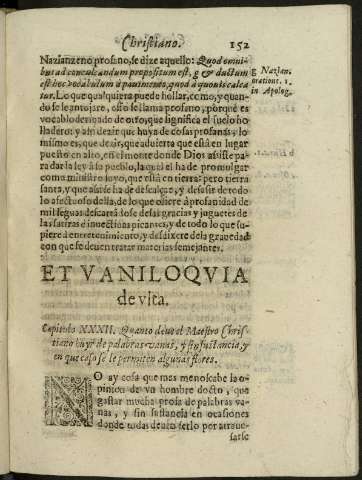 Christiano. 152
Nazianzeno profano, se dize aquello: Quod omni-
bus ad conculcandum propositum est, g & ductum
est hoc vocabulum à pauimento, quod à quouis calca
tur. Lo que qualquiera puede hollar, como, y quan-
do se le antojare, esso se llama profano, porque es
vocablo deriuado de otro, que significa el suelo ho-
lladero: y assi dezir que huya de cosas profanas, lo
mismo es, que dezir, que aduierta que està en lugar
puesto en alto, en el monte donde Dios assiste pa-
ra dar la ley à su pueblo, la qual el ha de promulgar
como ministro suyo, que està en tierra, pero tierra
santa, y que assi se ha de descalçar, y desasir de todo
lo afectuoso della, de lo que oliere à profanidad de
mil leguas descartandose desas gracias y juguetes de
las satiras è inuectiuas picantes, y de todo lo que su-
piere à entretenimiento, y desdixere de la grauedad
con que se deuen tratar materias semejantes.
g Nazian.
oratione. 1.
in Apolog.
ET VANILOQVIA
deuita.
Capitulo XXXII. Quanto deue el Maestro Chris-
tiano huyr de palabras vanas, y sin sustancia, y
en que caso se le permiten algunas flores.
NO ay cosa que mas menoscabe la o-
pinion de vn hombre docto, que
gastar mucha prosa de palabras va-
nas, y sin sustancia en ocasiones
donde todas deuen serlo por atraue-
sarse